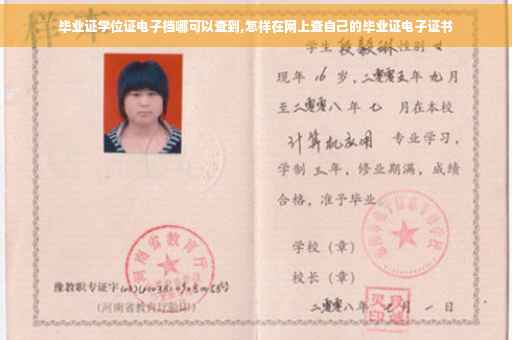 毕业证学位证电子档哪可以查到,怎样在网上查自己的毕业证电子证书
样本
学生 段毅琳 性别 女
现年 16 岁,二零零五年 九月
至二零零八年 七 月在本校
计算机应用 专业学习,
学制 三 年,修业期满,成绩
合格,准予毕业
学校(章)
校长(章)
二零零八年 七 月 一 日
河南省教育厅
豫教职专证字
(河南省教育厅验印)